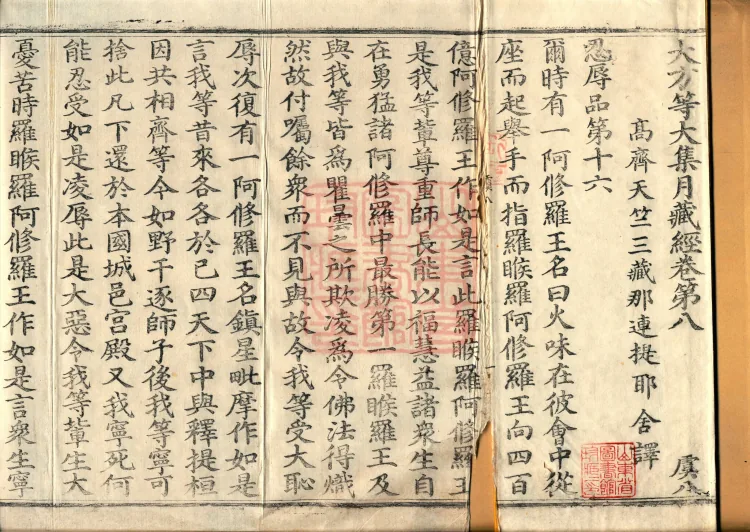 大方等大集月藏經卷第八　虞八
高齊天竺三藏那連提耶舍譯
忍辱品第十六
爾時有一阿修羅王名曰火味在彼會中從
座而起舉手而指羅睺羅阿修羅王向四百
億阿修羅王作如是言此羅睺羅阿修羅王
是我等輩尊重師長能以福慧益諸衆生自
在勇猛諸阿修羅中最勝第一羅睺羅王及
與我等皆爲瞿曇之所欺凌爲令佛法得熾
然故付囑餘衆而不見與故令我等受大恥
辱次復有一阿修羅王名鎮星毗摩作如是
言我等昔來各各於已四天下中與釋提桓
因共相齊等今如野干逐師子後我等寧可
捨此凡下還於本國城邑宮殿又我寧死何
能忍受如是凌辱此是大惡令我等輩生大
憂苦時羅睺羅阿修羅王作如是言衆生寧
山東省
圖書館